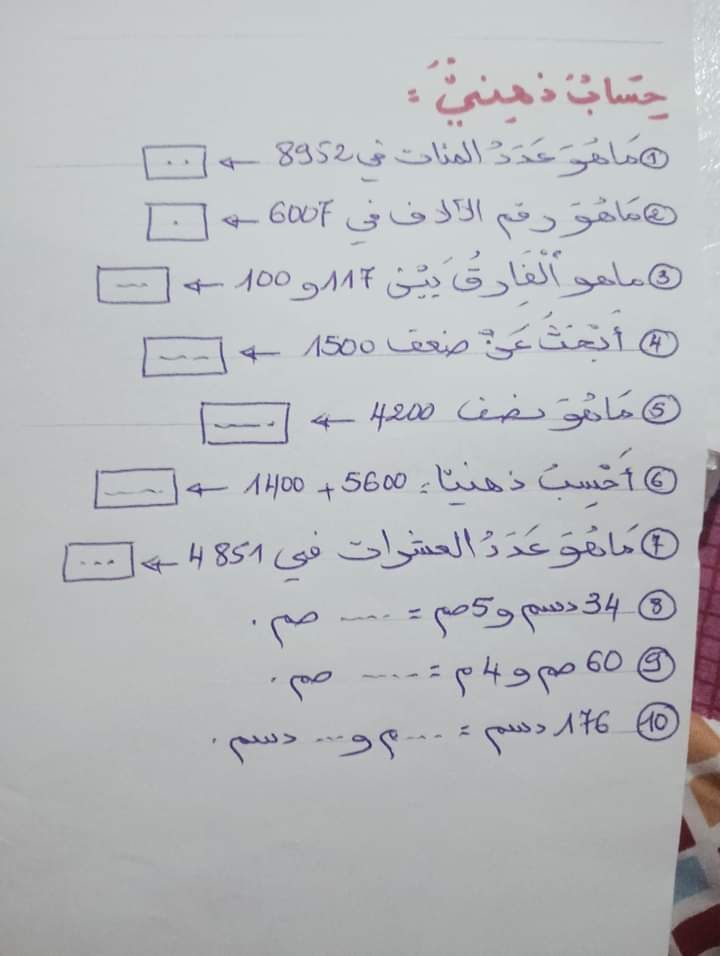 حِسَابٌ ذهِنيٌّ =
① مَاهُوَ عَدَدُ المئات في 8952 ← ..
② مَاهُوَ رقم الآلاف في 6007 ← .
③ ماهو اَلْفَارِقُ بَيْنَ 117 و 100 ← ...
④ أَبْحَثُ عَنْ ضعف 1500 ← ....
⑤ مَاهُوَ نصف 4200 ← ....
⑥ أَحْسِبُ ذهنيّا: 5600 + 1400 ← ....
⑦ مَاهُوَ عَدَدُ العشرات في 4851 ← ...
⑧ 34 دسم و 5 صم = .... صم .
⑨ 60 صم و 4 م = .... صم .
⑩ 176 دسم = .... م و ... دسم .